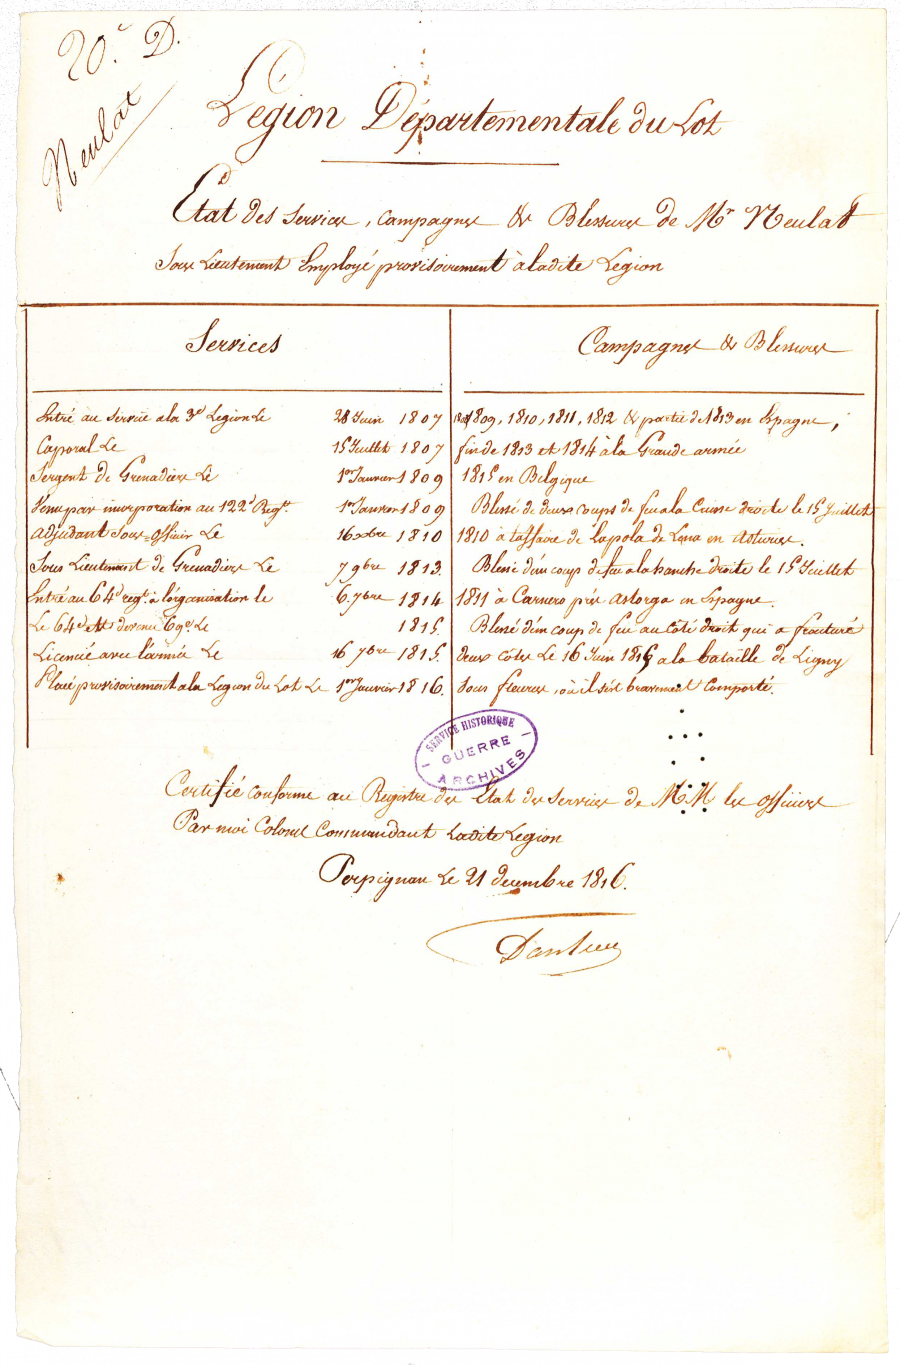 20.e D.
Neulat
Légion Départementale du Lot
Etat des Services, Campagnes & Blessures de Mr Neulat
Sous Lieutenant Employé provisoirement à ladite Légion
Services
Campagnes & Blessures
Entré au Service a la 3e Legion Le 28 Juin 1807
Caporal Le 15 Juillet 1807
Sergent de Grenadiers Le 1er Janvier 1809
Venu par incorporation au 122e Regt. 1er Janvier 1809
Adjudant Sous-officier Le 16 xbre 1810
Sous Lieutenant de Grenadiers Le 7 9bre 1813.
Entré au 64e regt. à l'organisation le 6. 7bre 1814
Le 64e devenu 69e. Le 1815.
Licencié avec l'armée Le 16 7bre 1815.
Placé provisoirement a la Legion du Lot Le 1er Janvier 1816.
1809, 1810, 1811, 1812 & partie de 1813 en Espagne,
fin de 1813 et 1814 à la Grande armée
1815 en Belgique
Blessé de deux coups de feu a la Cuisse droite le 15 Juillet
1810 à l'affaire de Lapola de Lena en Asturies.
Blessé d'un coup de feu a la hanche droite le 15 Juillet
1811 à Carnero près Astorga en Espagne.
Blessé d'un coup de feu au côté droit qui a fracturé
deux côtes Le 16 Juin 1815 a la bataille de Ligny
sous fleurus, où il s'est bravement Comporté.
SERVICE HISTORIQUE
GUERRE
ARCHIVES
Certifié conforme au Registre des Etat des Services de MM les officiers
Par moi Colonel Commandant Ladite Legion
Perpignan Le 21 decembre 1816.